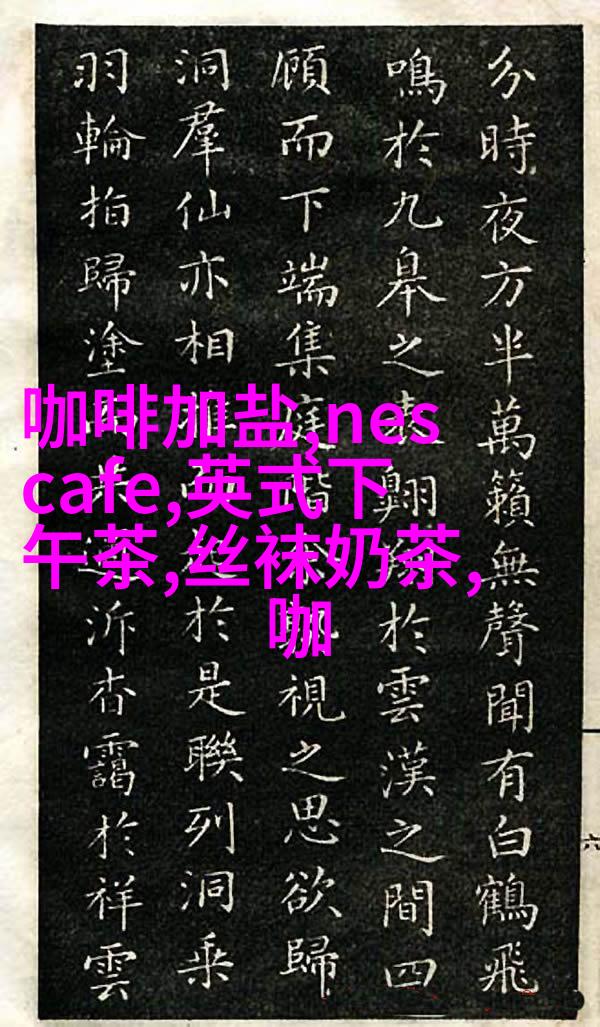 分時夜方半萬籟無聲聞有白鶴飛
鳴於九皋之表翱於雲漢之間四
顧而下端集庭階視之思欲歸
洞羣仙亦相於是聯列洞乘
羽輪拍歸塗泝杳靄於祥雲
咖啡加盐,nes
cafe,英式下
午茶,丝袜奶茶,
咖
六